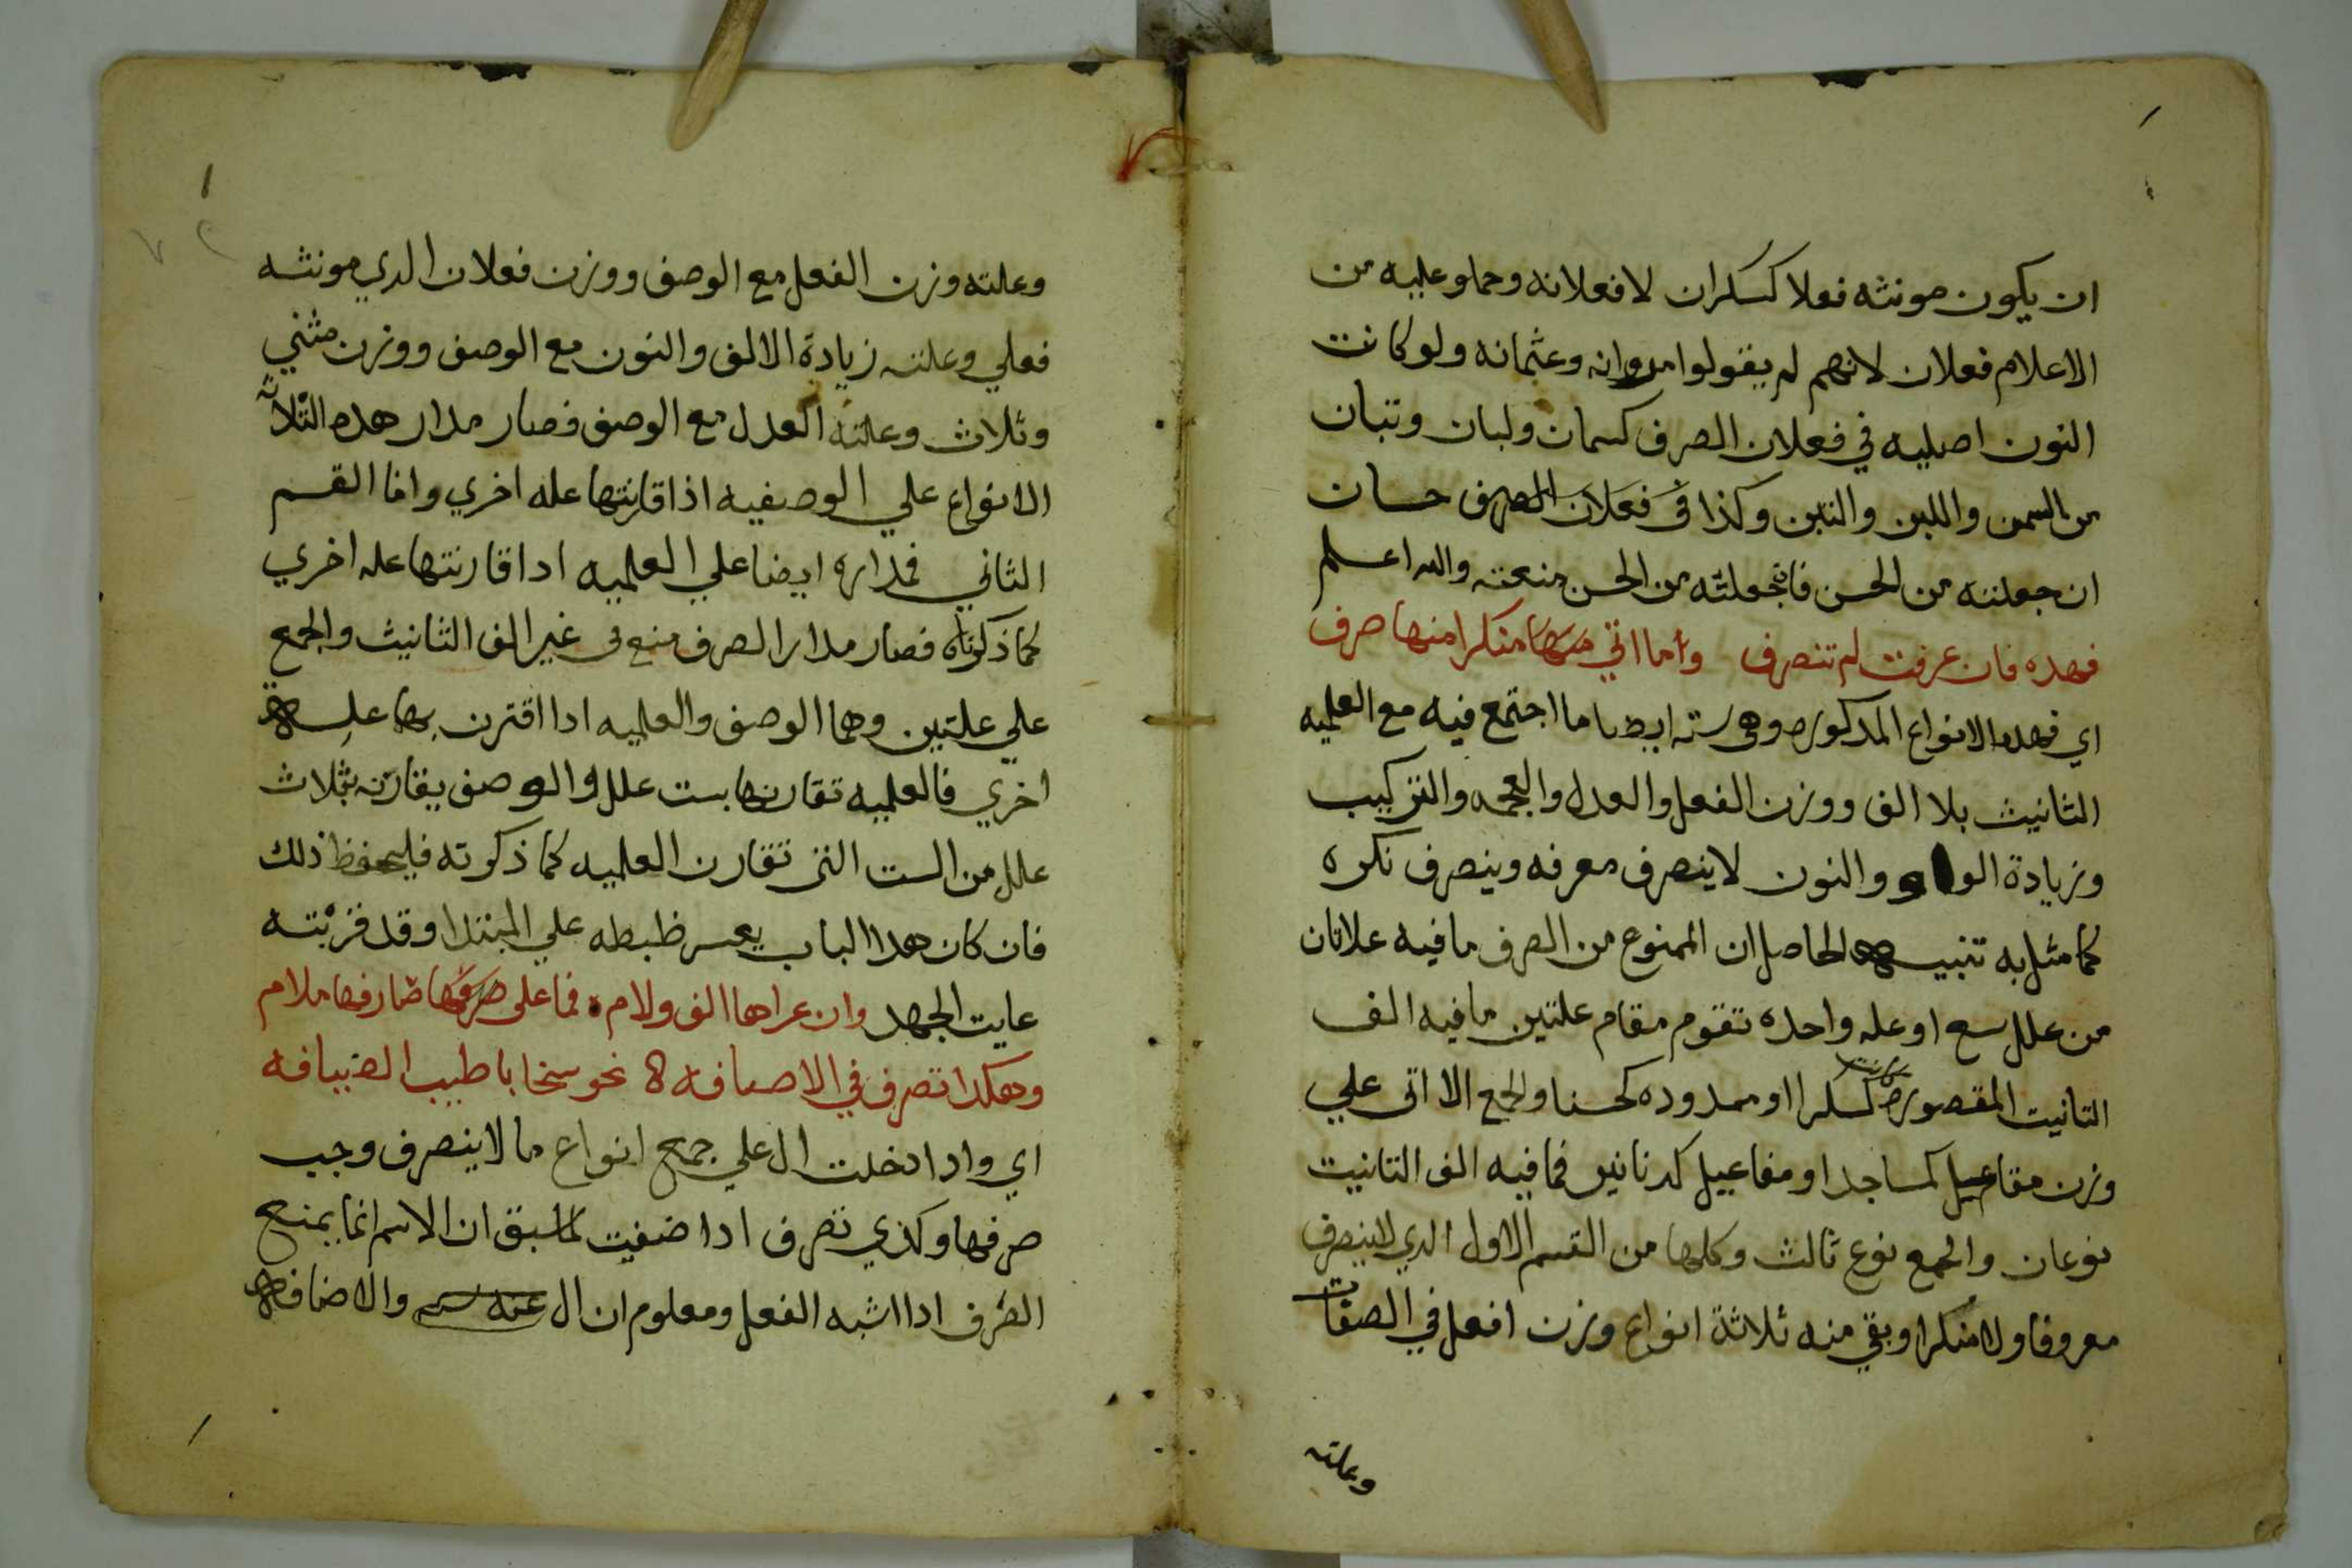 ان يكون مونثه فعلا كسكران لا فعلانه وحملو عليه من
الاعلام فعلان لانهم لم يقولوا مروانه وعثمانه ولو كانت
النون اصليه في فعلان الصرف كسمان ولبان وتبان
من السمن واللبن والتبن وكذا في فعلان الصرف حسان
ان جعلته من الحسن فان جعلته من الحس منعته والله اعلم
فهده فان عرفت لم تنصرف وما اتي منها منكرا منها صرف
اي فهده الانواع المدكوره وهي سته ايضا ما اجتمع فيه مع العلميه
التانيث بلا الف ووزن الفعل والعدل والعجمه والتركيب
وزيادة الواو والنون لا ينصرف معرفه وينصرف نكره
كما مثل به تنبيه الحاصل ان الممنوع من الصرف ما فيه علاتان
من علل سع او عله واحده تقوم مقام علتين ما فيه الف
التانيت المقصوره كسكرا او ممدوده كحسنا والجمع الا اتي علي
وزن مفاعل كمساجد او مفاعيل كدنانير فما فيه الف التانيت
نوعان والجمع نوع ثالث وكلها من القسم الاول الدي لا ينصرف
معروفا ولا منكرا وبقي منه ثلاثة انواع وزن افعل في الصفات
وعلته
وعلته وزن الفعل مع الوصف ووزن فعلان الدي مونثه
فعلي وعلته زيادة الالف والنون مع الوصف ووزن مثني
وثلاث وعلته العدل مع الوصف فصار مدار هده الثلاثه
الانواع علي الوصفيه اذا قارنتها عله اخري واما القسم
الثاني فمداره ايضا علي العلميه ادا قارنتها عله اخري
كما ذكرناه فصار مدار الصرف منع في غير الف الثانيث والجمع
علي علتين وهما الوصف والعلميه ادا اقترن بها علة
اخري فالعلميه تقارنها بست علل والوصف يقارنه بثلاث
علل من الست التي تقارن العلميه كما ذكرته فليحفظ ذلك
فان كان هدا الباب يعسر ظبطه علي المبتدا وقد قربته
عايت الجهد وان عراها الف ولام فما على صرفها ملام
وهكدا تصرف في الاضافه نحو سخا باطيب الضيافه
اي وادا دخلت ال علي جمع انواع ما لا ينصرف وجب
صرفها وكذي تصرف ادا ضفيت لما سبق ان الاسم انما يمنع
الصرف ادا اشبه الفعل ومعلوم ان ال والاضافه